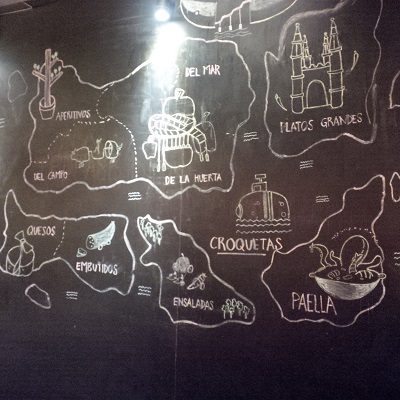 DEL MAR
APERITIVOS
PLATOS GRANDES
DEL CAMPO
DE LA HUERTA
QUESOS
CROQUETAS
EMBUTIDOS
ENSALADAS
PAELLA